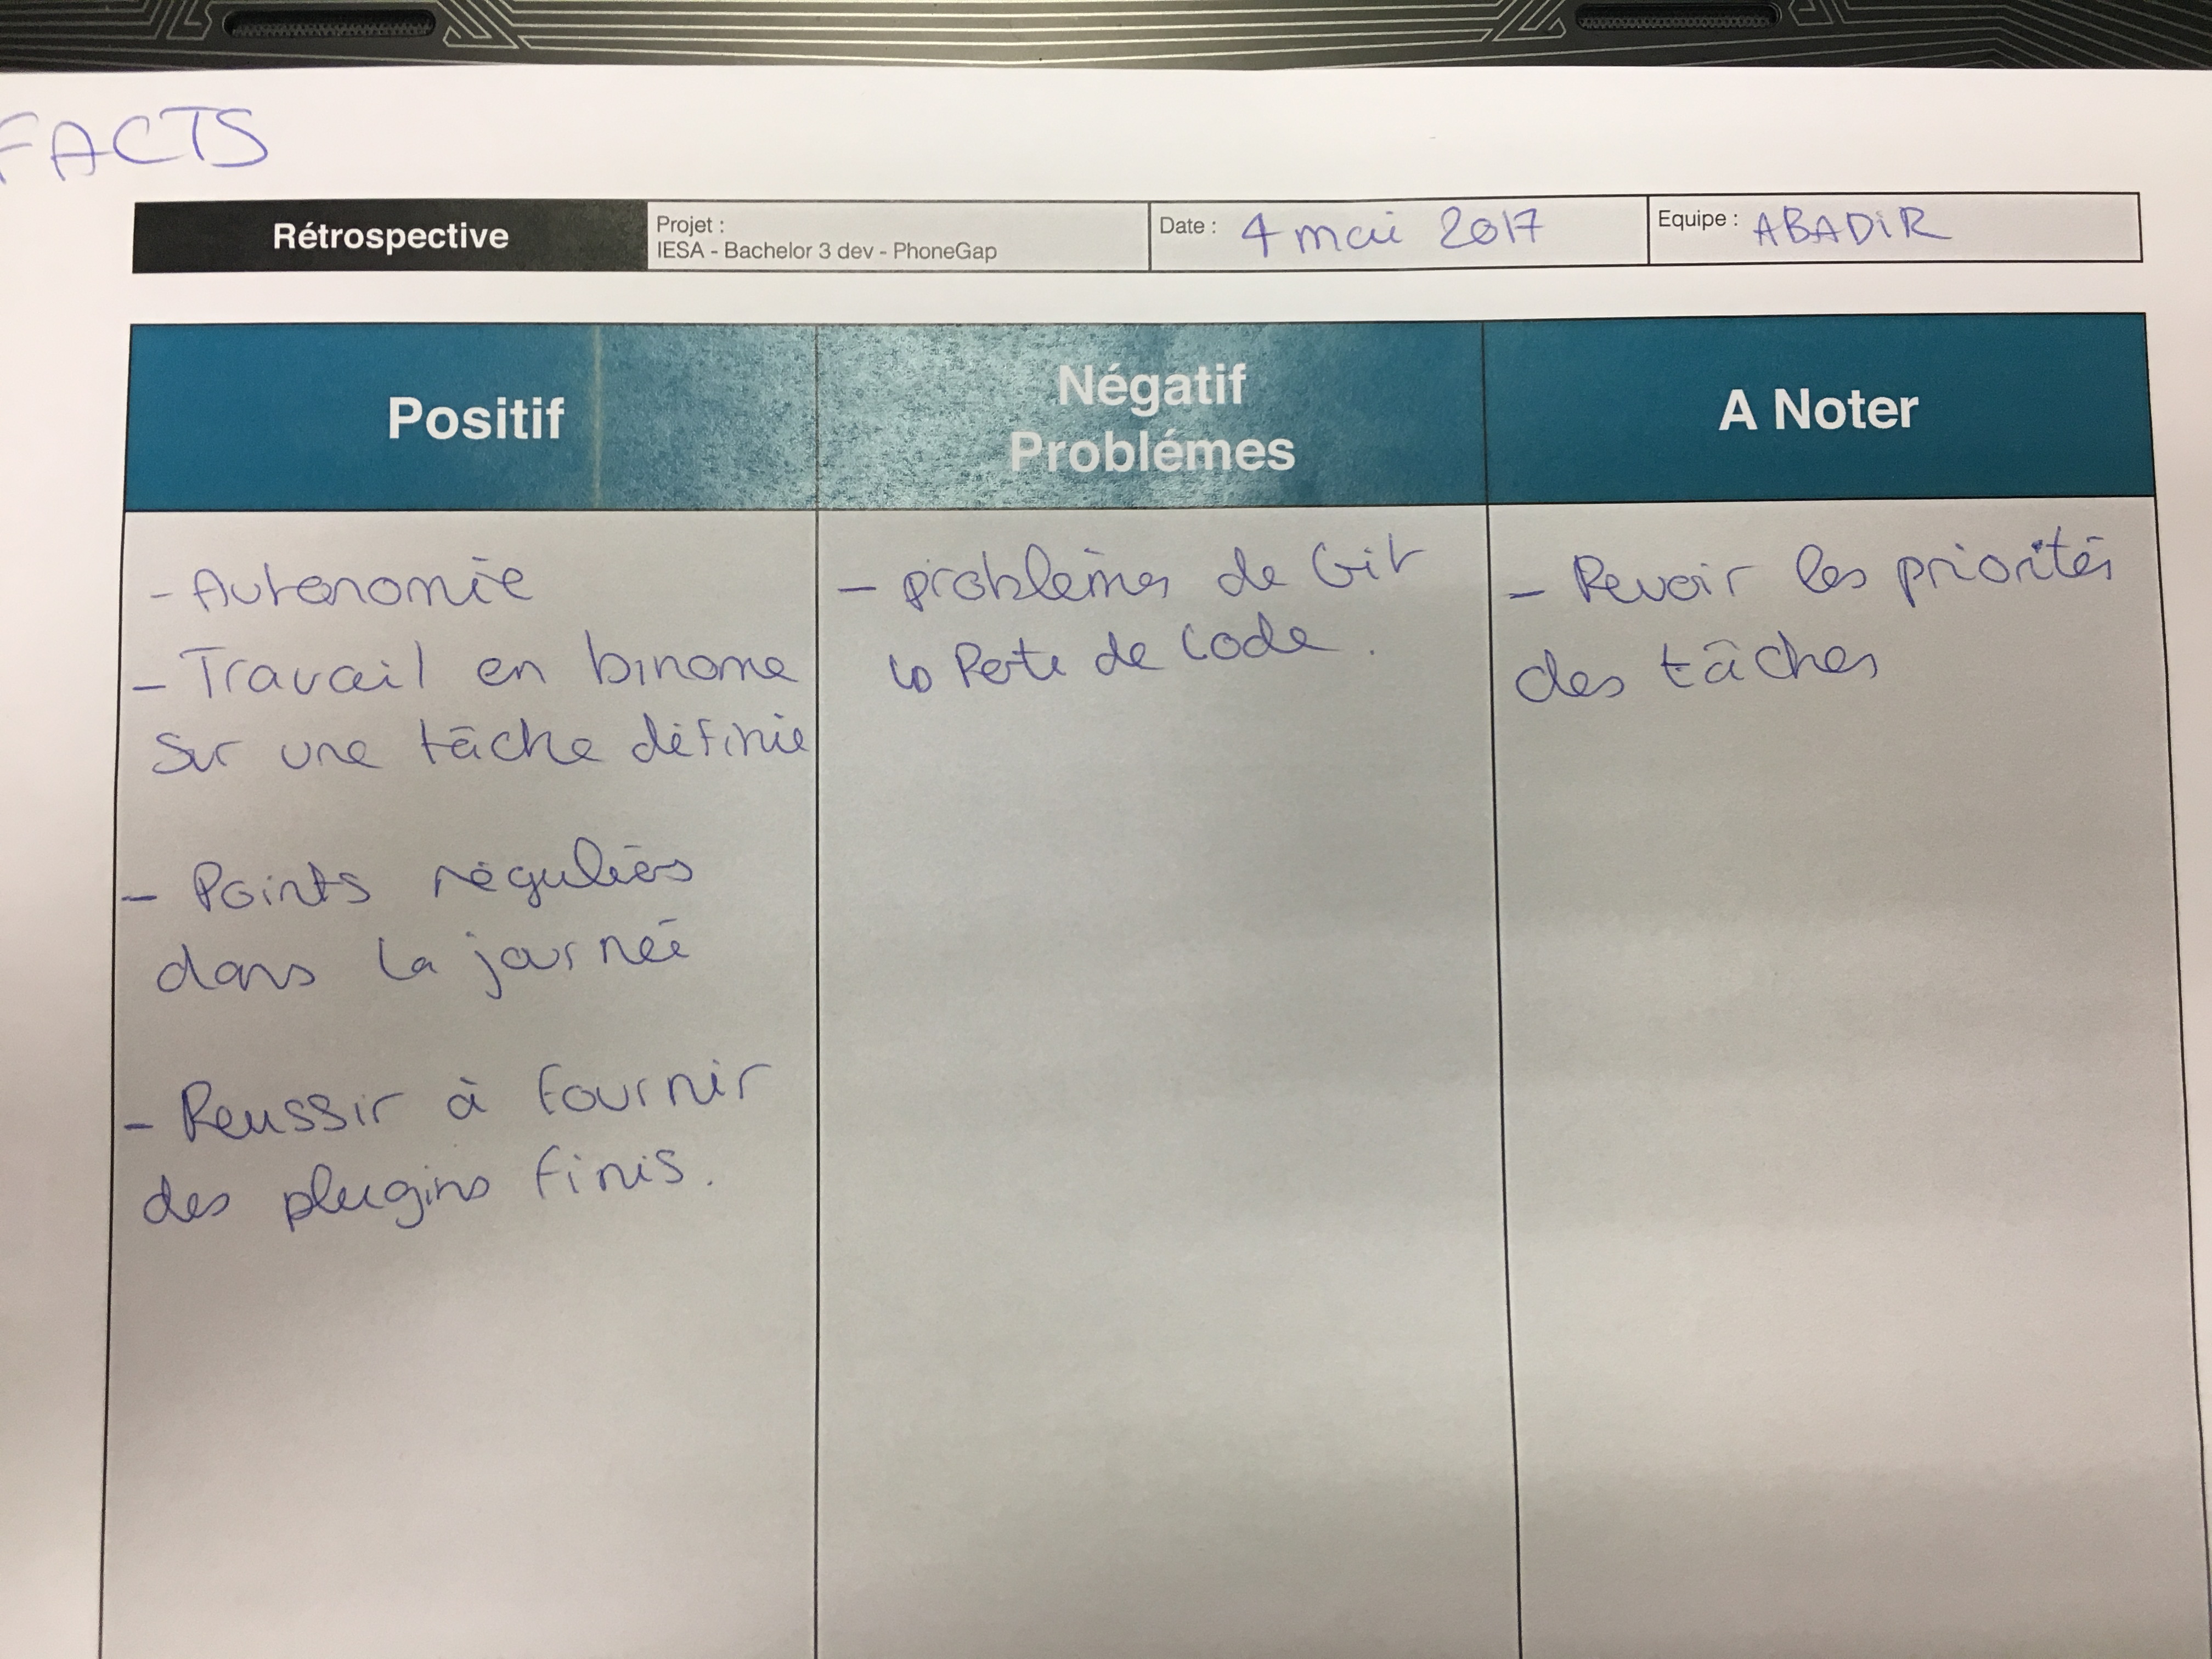 FACTS
Rétrospective
Projet :
IESA - Bachelor 3 dev - PhoneGap
Date : 4 mai 2017
Equipe : ABADiR
Positif
- Autonomie
- Travail en binome
sur une tâche définie
- Points réguliers
dans la journée
- Reussir à fournir
des plugins finis.
Négatif
Problémes
- problèmes de Git
↳ Perte de Code.
A Noter
- Revoir les priorités
des tâches